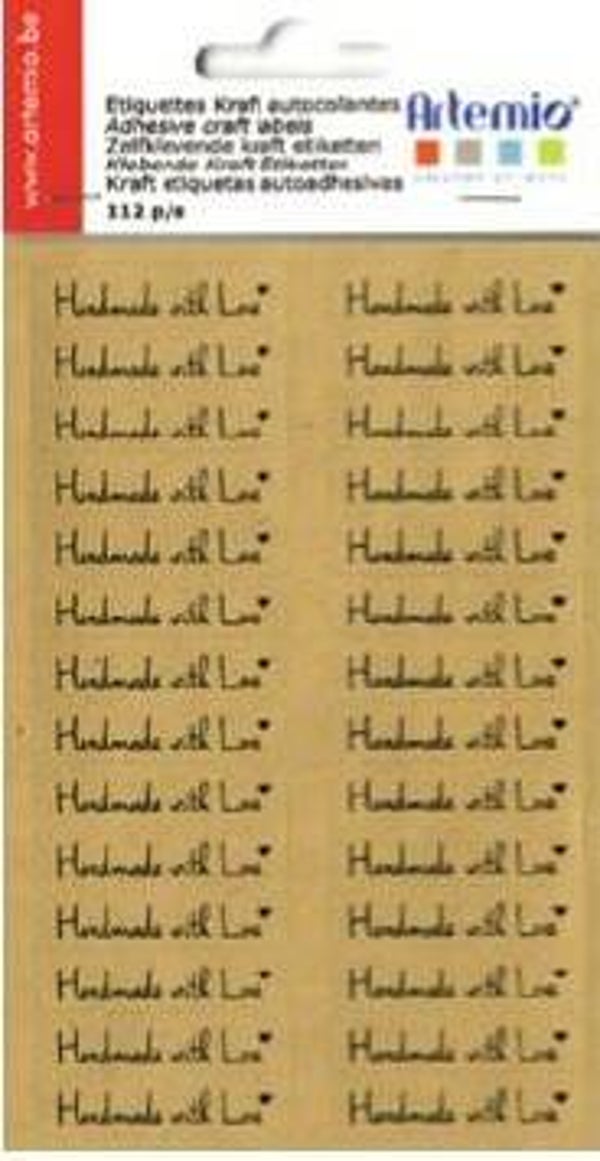 www.artemio.be
Etiquettes Kraft autocollantes
Adhesive craft labels
Zelfklevende kraft etiketten
Klebende Kraft Etiketten
Kraft etiquetas autoadhesivas
112 p/s
Artemio
Handmade with Love Handmade with Love
Handmade with Love Handmade with Love
Handmade with Love Handmade with Love
Handmade with Love Handmade with Love
Handmade with Love Handmade with Love
Handmade with Love Handmade with Love
Handmade with Love Handmade with Love
Handmade with Love Handmade with Love
Handmade with Love Handmade with Love
Handmade with Love Handmade with Love
Handmade with Love Handmade with Love
Handmade with Love Handmade with Love
Handmade with Love Handmade with Love
Handmade with Love Handmade with Love